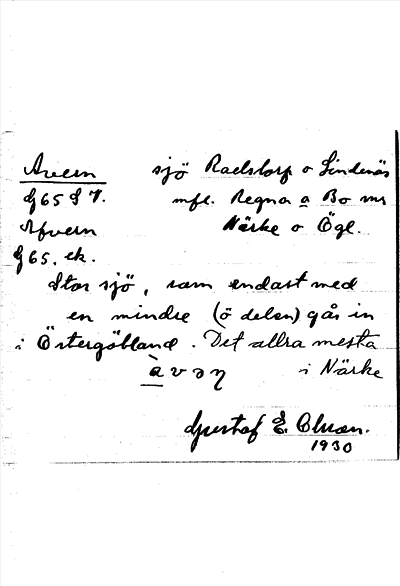 Avern sjö Raelstorp o Lindenäs
G65 S V. mfl. Regna o Bo snr
Afvern Närke o Ögl.
G65. ek.
Stor sjö, som endast med
en mindre (ö delen) går in
i Östergötland. Det allra mesta
i Närke
àvəŋ
Gustaf E. Olsson.
1930